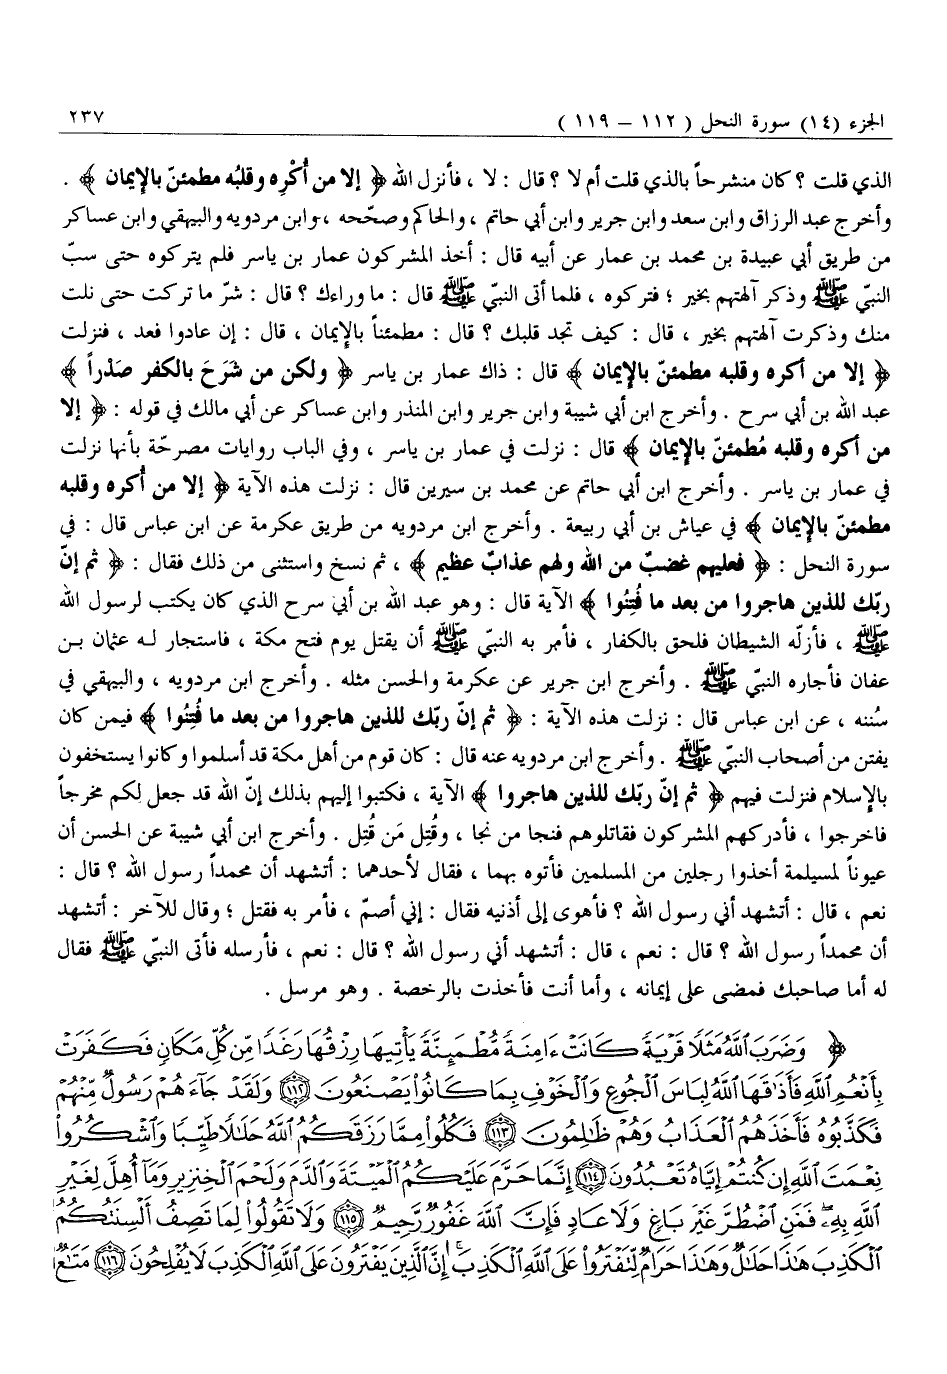 الجزء (١٤) سورة النحل ( ١١٢ – ١١٩ ) ٢٣٧
الذي قلت ؟ كان منشرحاً بالذي قلت أم لا ؟ قال : لا ، فأنزل الله ﴿ إلا من أُكْرِه وقلبُه مطمئنّ بالإيمان ﴾ .
وأخرج عبد الرزاق وابن سعد وابن جرير وابن أبي حاتم ، والحاكم وصحّحه ، وابن مردويه والبيهقي وابن عساكر
من طريق أبي عبيدة بن محمد بن عمار عن أبيه قال : أخذ المشركون عمار بن ياسر فلم يتركوه حتى سبّ
النبيّ ﷺ وذكر آلهتهم بخير ؛ فتركوه ، فلما أتى النبيّ ﷺ قال : ما وراءك ؟ قال : شرّ ما تركت حتى نلت
منك وذكرت آلهتهم بخير ، قال : كيف تجد قلبك ؟ قال : مطمئناً بالإيمان ، قال : إن عادوا فعد ، فنزلت
﴿ إلا من أكره وقلبه مطمئنّ بالإيمان ﴾ قال : ذاك عمار بن ياسر ﴿ ولكن من شَرَحَ بالكفر صَدْراً ﴾
عبد الله بن أبي سرح . وأخرج ابن أبي شيبة وابن جرير وابن المنذر وابن عساكر عن أبي مالك في قوله : ﴿ إلا
من أكره وقلبه مُطمئنّ بالإيمان ﴾ قال : نزلت في عمار بن ياسر ، وفي الباب روايات مصرحّة بأنها نزلت
في عمار بن ياسر . وأخرج ابن أبي حاتم عن محمد بن سيرين قال : نزلت هذه الآية ﴿ إلا من أُكره وقلبه
مطمئنّ بالإيمان ﴾ في عياش بن أبي ربيعة . وأخرج ابن مردويه من طريق عكرمة عن ابن عباس قال : في
سورة النحل : ﴿ فعليهم غضبٌ من الله ولهم عذابٌ عظيم ﴾ ، ثم نسخ واستثنى من ذلك فقال : ﴿ ثم إنّ
ربّك للذين هاجروا من بعد ما فُتِنُوا ﴾ الآية قال : وهو عبد الله بن أبي سرح الذي كان يكتب لرسول الله
ﷺ ، فأزلّه الشيطان فلحق بالكفار ، فأمر به النبيّ ﷺ أن يقتل يوم فتح مكة ، فاستجار لـه عثمان بـن
عفان فأجاره النبيّ ﷺ . وأخرج ابن جرير عن عكرمة والحسن مثله . وأخرج ابن مردويه ، والبيهقي في
سُننه ، عن ابن عباس قال : نزلت هذه الآية : ﴿ ثم إنّ ربّك للذين هاجروا من بعد ما فُتِنُوا ﴾ فيمن كان
يفتن من أصحاب النبيّ ﷺ . وأخرج ابن مردويه عنه قال : كان قوم من أهل مكة قد أسلموا وكانوا يستخفون
بالإسلام فنزلت فيهم ﴿ ثم إنّ ربّك للذين هاجروا ﴾ الآية ، فكتبوا إليهم بذلك إنّ الله قد جعل لكم مخرجاً
فاخرجوا ، فأدركهم المشركون فقاتلوهم فنجا من نجا ، وقُتِل مَن قُتِل . وأخرج ابن أبي شيبة عن الحسن أن
عيوناً لمسيلمة أخذوا رجلين من المسلمين فأتوه بهما ، فقال لأحدهما : أتشهد أن محمداً رسول الله ؟ قال :
نعم ، قال : أتشهد أني رسول الله ؟ فأهوى إلى أذنيه فقال : إني أصمّ ، فأمر به فقتل ؛ وقال للآخر : أتشهد
أن محمداً رسول الله ؟ قال : نعم ، قال : أتشهد أني رسول الله ؟ قال : نعم ، فأرسله فأتى النبيّ ﷺ فقال
له أما صاحبك فمضى على إيمانه ، وأما أنت فأخذت بالرخصة . وهو مرسل .
﴿ وَضَرَبَ ٱللَّهُ مَثَلًا قَرْيَةً كَانَتْ ءَامِنَةً مُّطْمَئِنَّةً يَأْتِيهَا رِزْقُهَا رَغَدًا مِّن كُلِّ مَكَانٍ فَكَفَرَتْ
بِأَنْعُمِ ٱللَّهِ فَأَذَاقَهَا ٱللَّهُ لِبَاسَ ٱلْجُوعِ وَٱلْخَوْفِ بِمَا كَانُوا۟ يَصْنَعُونَ ١١٢ وَلَقَدْ جَآءَهُمْ رَسُولٌ مِّنْهُمْ
فَكَذَّبُوهُ فَأَخَذَهُمُ ٱلْعَذَابُ وَهُمْ ظَٰلِمُونَ ١١٣ فَكُلُوا۟ مِمَّا رَزَقَكُمُ ٱللَّهُ حَلَٰلًا طَيِّبًا وَٱشْكُرُوا۟
نِعْمَتَ ٱللَّهِ إِن كُنتُمْ إِيَّاهُ تَعْبُدُونَ ١١٤ إِنَّمَا حَرَّمَ عَلَيْكُمُ ٱلْمَيْتَةَ وَٱلدَّمَ وَلَحْمَ ٱلْخِنزِيرِ وَمَآ أُهِلَّ لِغَيْرِ
ٱللَّهِ بِهِۦ فَمَنِ ٱضْطُرَّ غَيْرَ بَاغٍ وَلَا عَادٍ فَإِنَّ ٱللَّهَ غَفُورٌ رَّحِيمٌ ١١٥ وَلَا تَقُولُوا۟ لِمَا تَصِفُ أَلْسِنَتُكُمُ
ٱلْكَذِبَ هَٰذَا حَلَٰلٌ وَهَٰذَا حَرَامٌ لِّتَفْتَرُوا۟ عَلَى ٱللَّهِ ٱلْكَذِبَ ۚ إِنَّ ٱلَّذِينَ يَفْتَرُونَ عَلَى ٱللَّهِ ٱلْكَذِبَ لَا يُفْلِحُونَ ١١٦ مَتَٰعٌ